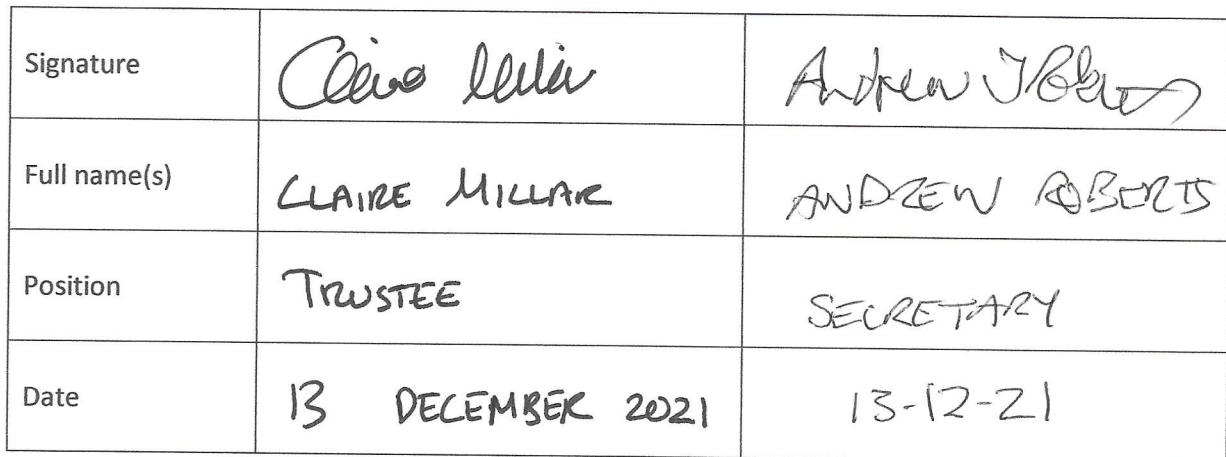 Signature Claire Millar Andrew J Roberts
Full name(s) CLAIRE MILLAR ANDREW ROBERTS
Position TRUSTEE SECRETARY
Date 13 DECEMBER 2021 13-12-21